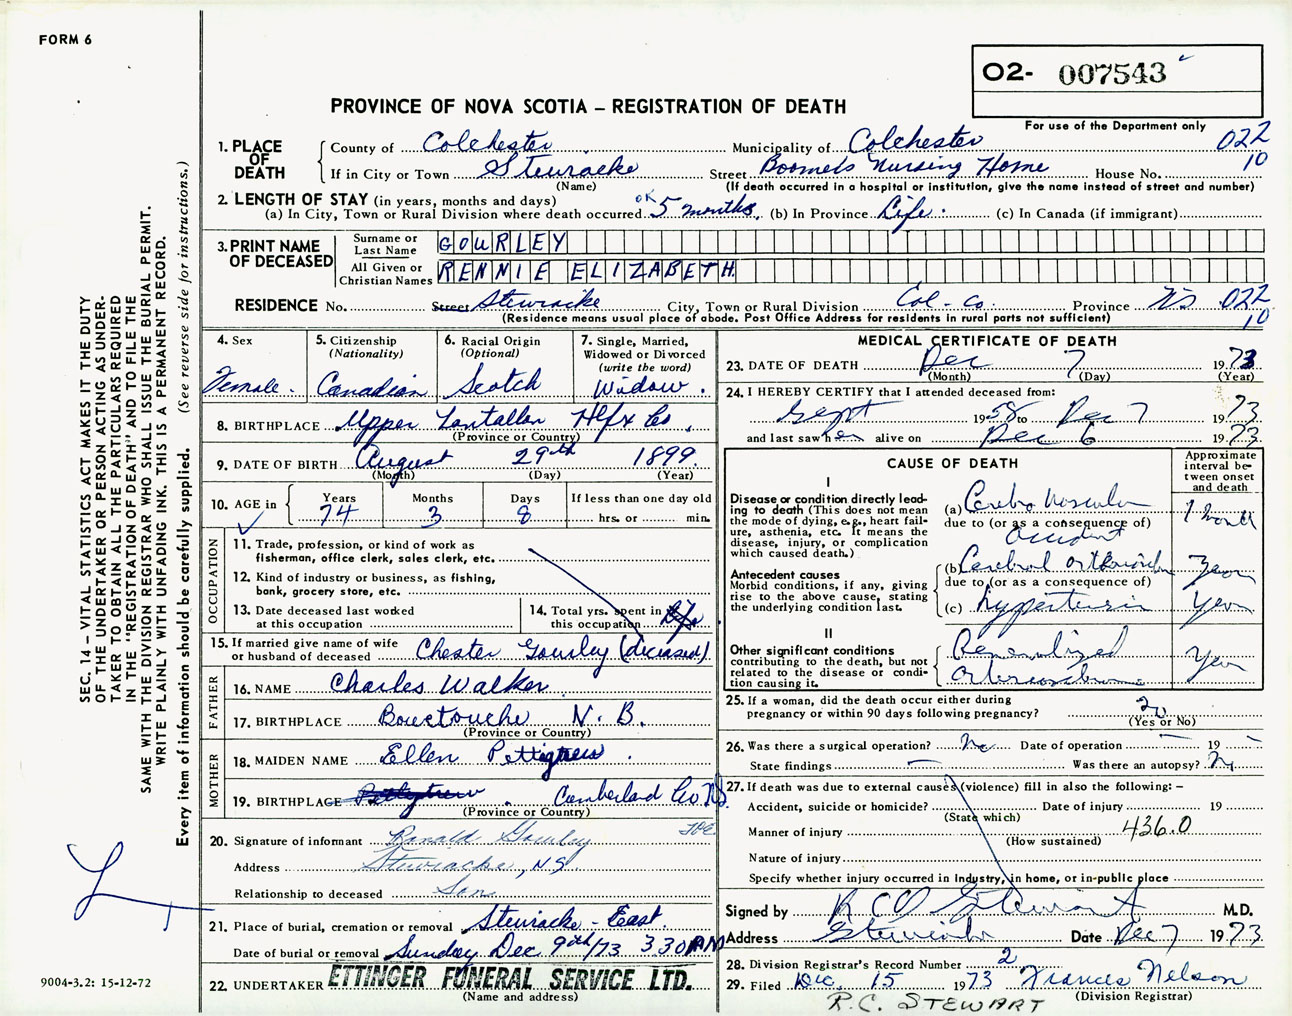 FORM 6
O2- 007543
PROVINCE OF NOVA SCOTIA – REGISTRATION OF DEATH
For use of the Department only
022
10
1. PLACE OF DEATH
County of Colchester Municipality of Colchester
If in City or Town Stewiacke Street Boomers Nursing Home House No.
(Name) (If death occurred in a hospital or institution, give the name instead of street and number)
2. LENGTH OF STAY (in years, months and days)
(a) In City, Town or Rural Division where death occurred OK 5 months, (b) In Province Life. (c) In Canada (if immigrant)
3. PRINT NAME OF DECEASED
Surname or Last Name GOURLEY
All Given or Christian Names RENNIE ELIZABETH
RESIDENCE No. Street Stewiacke City, Town or Rural Division Col- Co. Province N.S. 022
(Residence means usual place of abode. Post Office Address for residents in rural parts not sufficient) 10
4. Sex
Female.
5. Citizenship
(Nationality)
Canadian
6. Racial Origin
(Optional)
Scotch
7. Single, Married,
Widowed or Divorced
(write the word)
Widow.
8. BIRTHPLACE Upper Tantallon Hlfx Co.
(Province or Country)
9. DATE OF BIRTH August 29th 1899
(Month) (Day) (Year)
10. AGE in Years 74 Months 3 Days 8 If less than one day old
hrs. or min.
OCCUPATION
11. Trade, profession, or kind of work as
fisherman, office clerk, sales clerk, etc.
12. Kind of industry or business, as fishing,
bank, grocery store, etc.
13. Date deceased last worked
at this occupation
14. Total yrs. spent in
this occupation
15. If married give name of wife
or husband of deceased Chester Gourley (deceased)
FATHER
16. NAME Charles Walker
17. BIRTHPLACE Bouctouche N.B.
(Province or Country)
MOTHER
18. MAIDEN NAME Ellen Pettigrew.
19. BIRTHPLACE Cumberland Co NS
(Province or Country)
20. Signature of informant Ronald Gourley
Address Stewiacke, N.S.
Relationship to deceased Son
21. Place of burial, cremation or removal Stewiacke - East.
Date of burial or removal Sunday Dec 9th/73 3.30 AM
22. UNDERTAKER ETTINGER FUNERAL SERVICE LTD.
(Name and address)
MEDICAL CERTIFICATE OF DEATH
23. DATE OF DEATH Dec 7 1973
(Month) (Day) (Year)
24. I HEREBY CERTIFY that I attended deceased from:
Sept 1958 to Dec 7 1973
and last saw her alive on Dec 6 1973
CAUSE OF DEATH
Approximate
interval be-
tween onset
and death
I
Disease or condition directly lead-
ing to death (This does not mean
the mode of dying, e.g., heart fail-
ure, asthenia, etc. It means the
disease, injury, or complication
which caused death.)
(a) Cerebro Vascular
due to (or as a consequence of)
Accident
Antecedent causes
Morbid conditions, if any, giving
rise to the above cause, stating
the underlying condition last.
(b) Cerebral
due to (or as a consequence of)
(c) Hypertension
II
Other significant conditions
contributing to the death, but not
related to the disease or condi-
tion causing it.
25. If a woman, did the death occur either during
pregnancy or within 90 days following pregnancy? No
(Yes or No)
26. Was there a surgical operation? No Date of operation – 19 –
State findings – Was there an autopsy? No
27. If death was due to external causes (violence) fill in also the following: –
Accident, suicide or homicide? Date of injury 19
(State which)
Manner of injury 436.0
(How sustained)
Nature of injury
Specify whether injury occurred in industry, in home, or in public place
Signed by R C Stewart M.D.
Address Stewiacke Date Dec 7 1973
28. Division Registrar's Record Number 2
29. Filed Dec. 15 1973 Frances Nelson
(Division Registrar)
R.C. STEWART
SEC. 14 – VITAL STATISTICS ACT MAKES IT THE DUTY
OF THE UNDERTAKER OR PERSON ACTING AS UNDER-
TAKER TO OBTAIN ALL THE PARTICULARS REQUIRED
IN THE "REGISTRATION OF DEATH" AND TO FILE THE
SAME WITH THE DIVISION REGISTRAR WHO SHALL ISSUE THE BURIAL PERMIT.
WRITE PLAINLY WITH UNFADING INK. THIS IS A PERMANENT RECORD.
Every item of information should be carefully supplied. (See reverse side for instructions.)
9004-3.2: 15-12-72